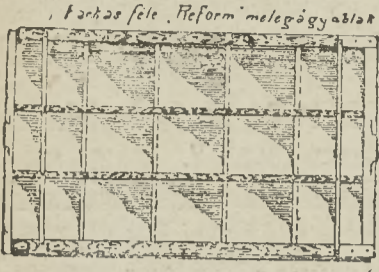 Farkas féle „Reform" melegágyablak